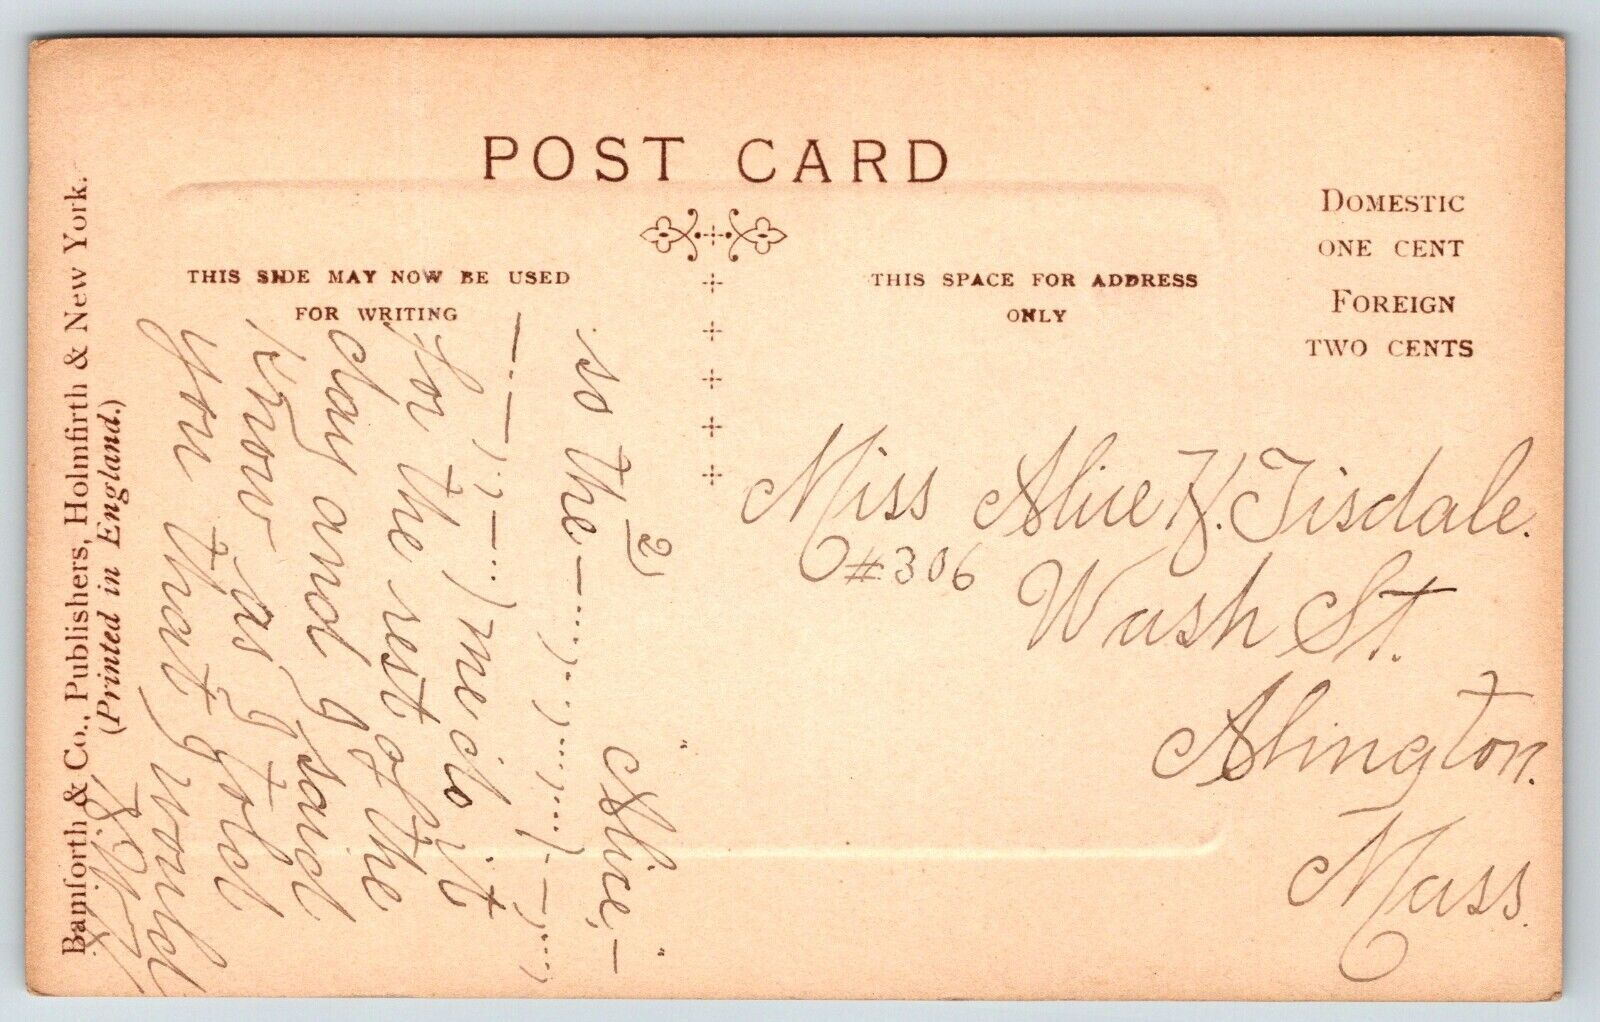 POST CARD
THIS SIDE MAY NOW BE USED
FOR WRITING
THIS SPACE FOR ADDRESS
ONLY
DOMESTIC
ONE CENT
FOREIGN
TWO CENTS
Bamforth & Co., Publishers, Holmfirth & New York.
(Printed in England.)
2)
"Alice,—"
so the
me do it
for the rest of the
day and I said
know as I told
you that I would
Miss Alice K. Tisdale.
#306
Wash St.
Abington.
Mass.